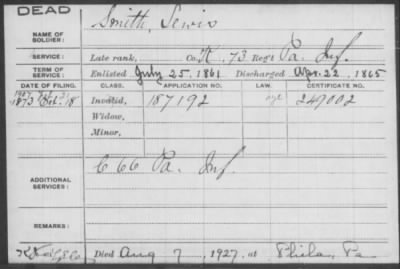 DEAD
NAME OF SOLDIER: Smith, Lewis
SERVICE: Late rank, Co. K, 73 Reg't Pa. Inf.
TERM OF SERVICE: Enlisted July 25, 1861 Discharged Apr. 22, 1865
DATE OF FILING. CLASS. APPLICATION NO. LAW. CERTIFICATE NO.
1873 Oct. 18 Invalid, 187192 249002
Widow,
Minor,
ADDITIONAL SERVICES: C 66 Pa. Inf.
REMARKS:
Died Aug 7, 1927, at Phila, Pa.